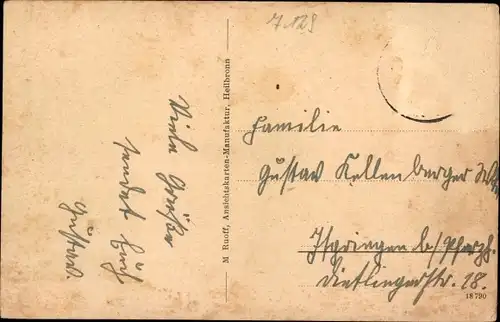 7.129
Viele Grüße
sendet Euch
Gustav.
M Ruoff, Ansichtskarten-Manufaktur, Heilbronn
Familie
Gustav Kellenberger
Ispringen b/ Pforzh.
Dietlingerstr. 18.
18790